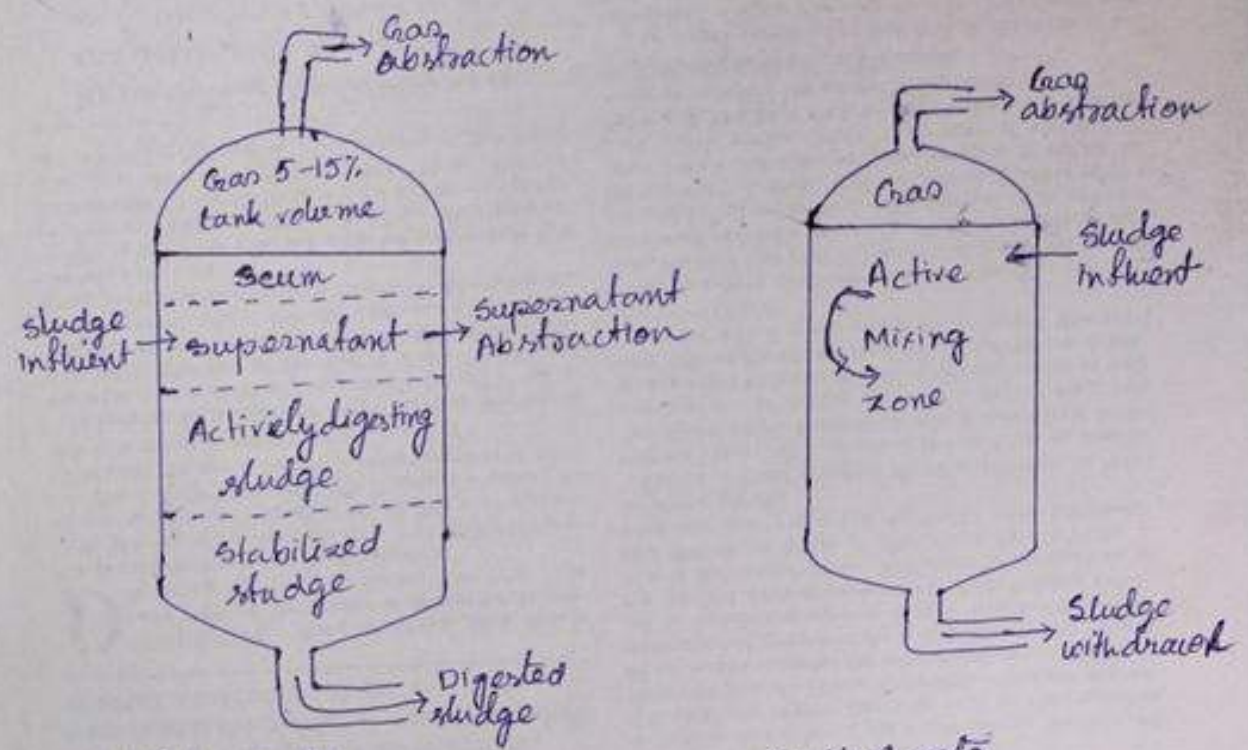 Gas
abstraction
Gas 5-15%
tank volume
Scum
Sludge
influent
supernatant
Supernatant
Abstraction
Actively digesting
sludge
Stabilized
sludge
Digested
sludge
Gas
abstraction
Gas
Sludge
influent
Active
Mixing
zone
Sludge
withdrawl